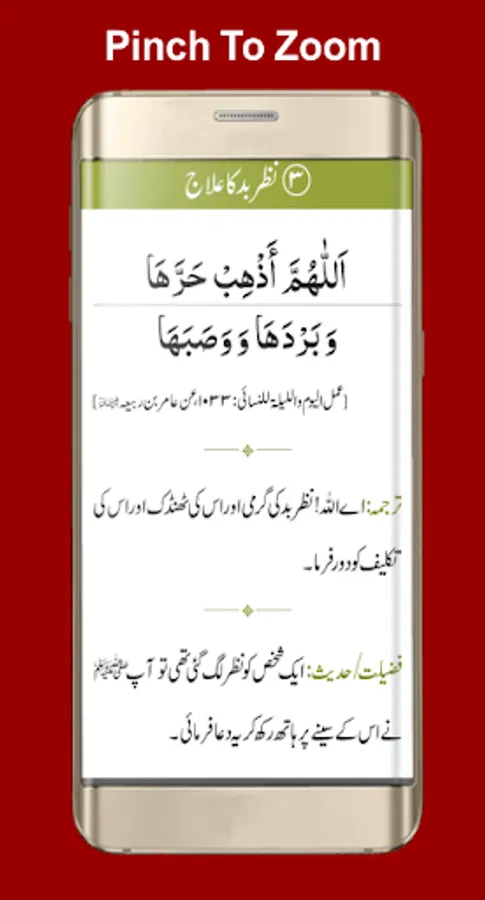 Pinch To Zoom
۳ نظر بد کا علاج
اَللّٰهُمَّ أَذْهِبْ حَرَّهَا
وَبَرْدَهَا وَوَصَبَهَا
[عمل الیوم واللیلۃ للنسائی: ۱۰۳۳، عن عامر بن ربیعہ ؓ]
ترجمہ: اے اللہ! نظر بد کی گرمی اور اس کی ٹھنڈک اور اس کی
تکلیف کو دور فرما۔
فضیلت/حدیث: ایک شخص کو نظر لگ گئی تھی تو آپ ﷺ
نے اس کے سینے پر ہاتھ رکھ کر یہ دعا فرمائی۔